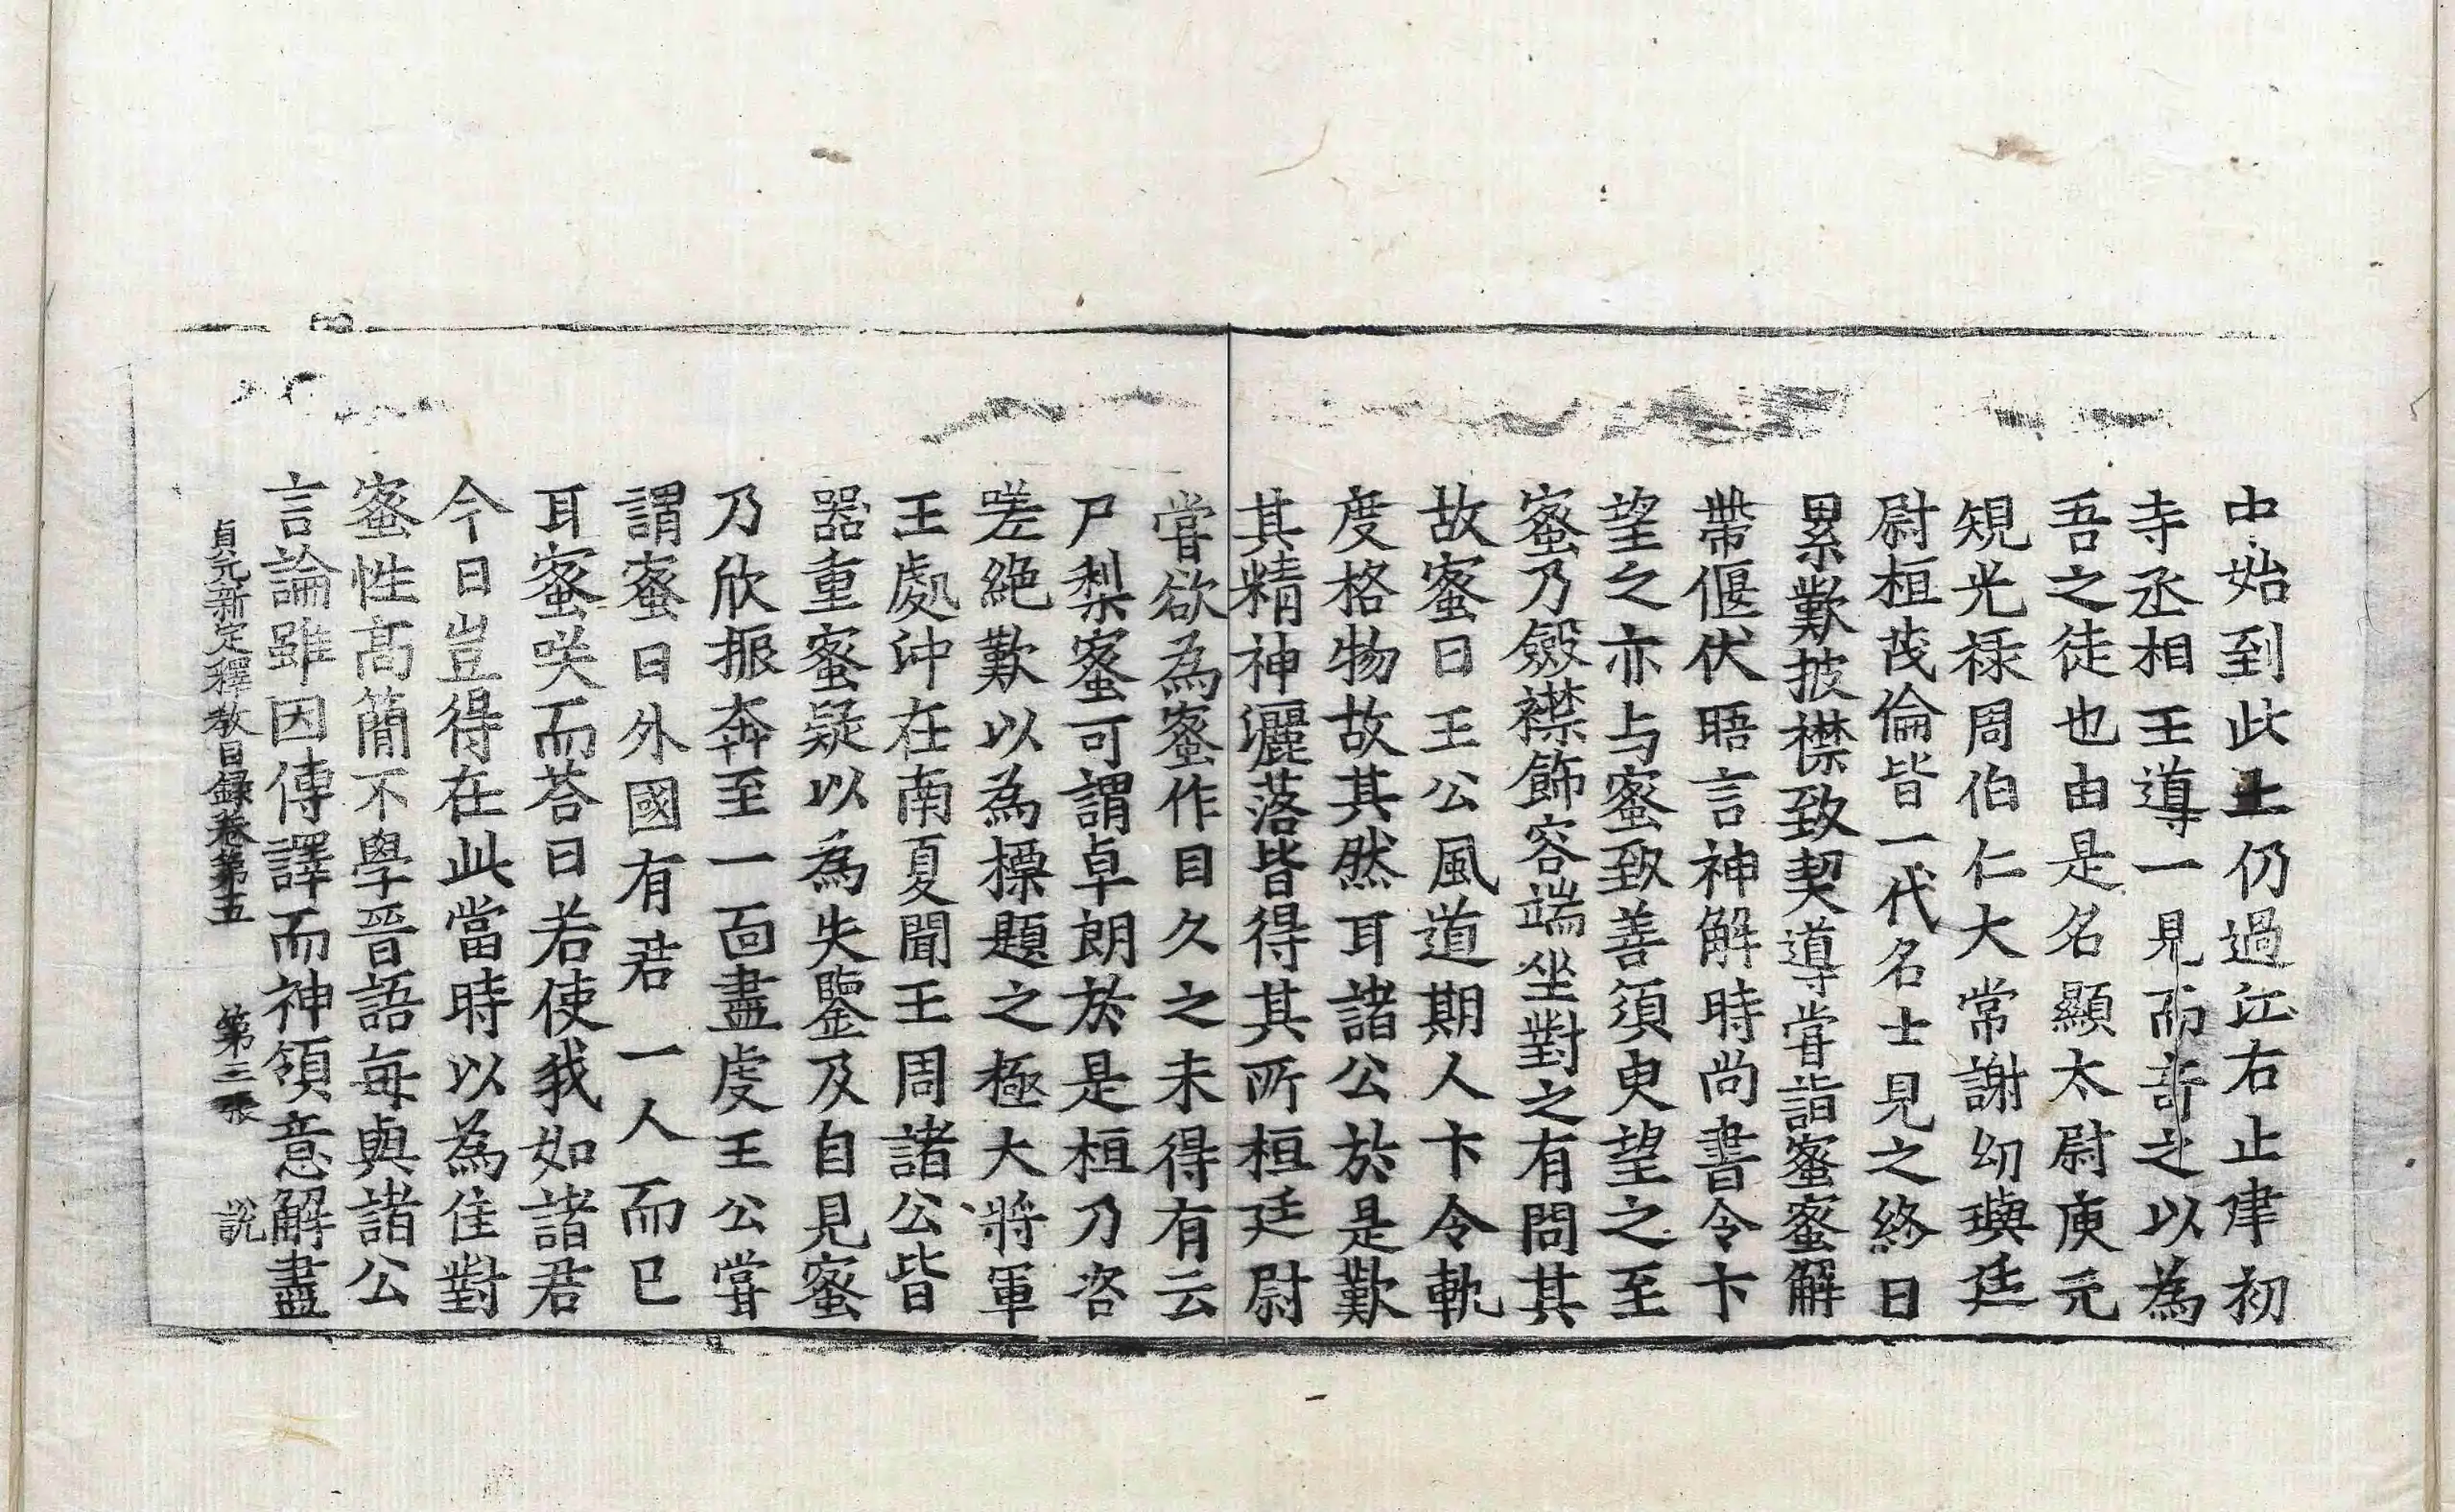 中始到此土仍過江右止建初
寺丞相王導一見而奇之以為
吾之徒也由是名顯太尉庾元
䂓光禄周伯仁大常謝幼璵廷
尉桓茂倫皆一代名士見之終日
累歎披襟致契導甞詣蜜蜜解
帶偃伏晤言神解時尚書令卞
望之亦与蜜致善須臾望之至
蜜乃斂襟飾容端坐對之有問其
故蜜曰王公風道期人卞令軌
度格物故其然耳諸公於是歎
其精神灑落皆得其所桓廷尉
甞欲為蜜作目久之未得有云
尸梨蜜可謂卓朗於是桓乃咨
嗟絶歎以為摽題之極大將軍
王處沖在南夏聞王周諸公皆
器重蜜疑以為失鑒及自見蜜
乃欣振奔至一面盡虔王公甞
謂蜜曰外國有君一人而已
耳蜜咲而荅曰若使我如諸君
今日豈得在此當時以為佳對
蜜性高簡不學晉語每與諸公
言論雖因傳譯而神領意解盡
貞元新定釋教目録卷第五 第三張 說